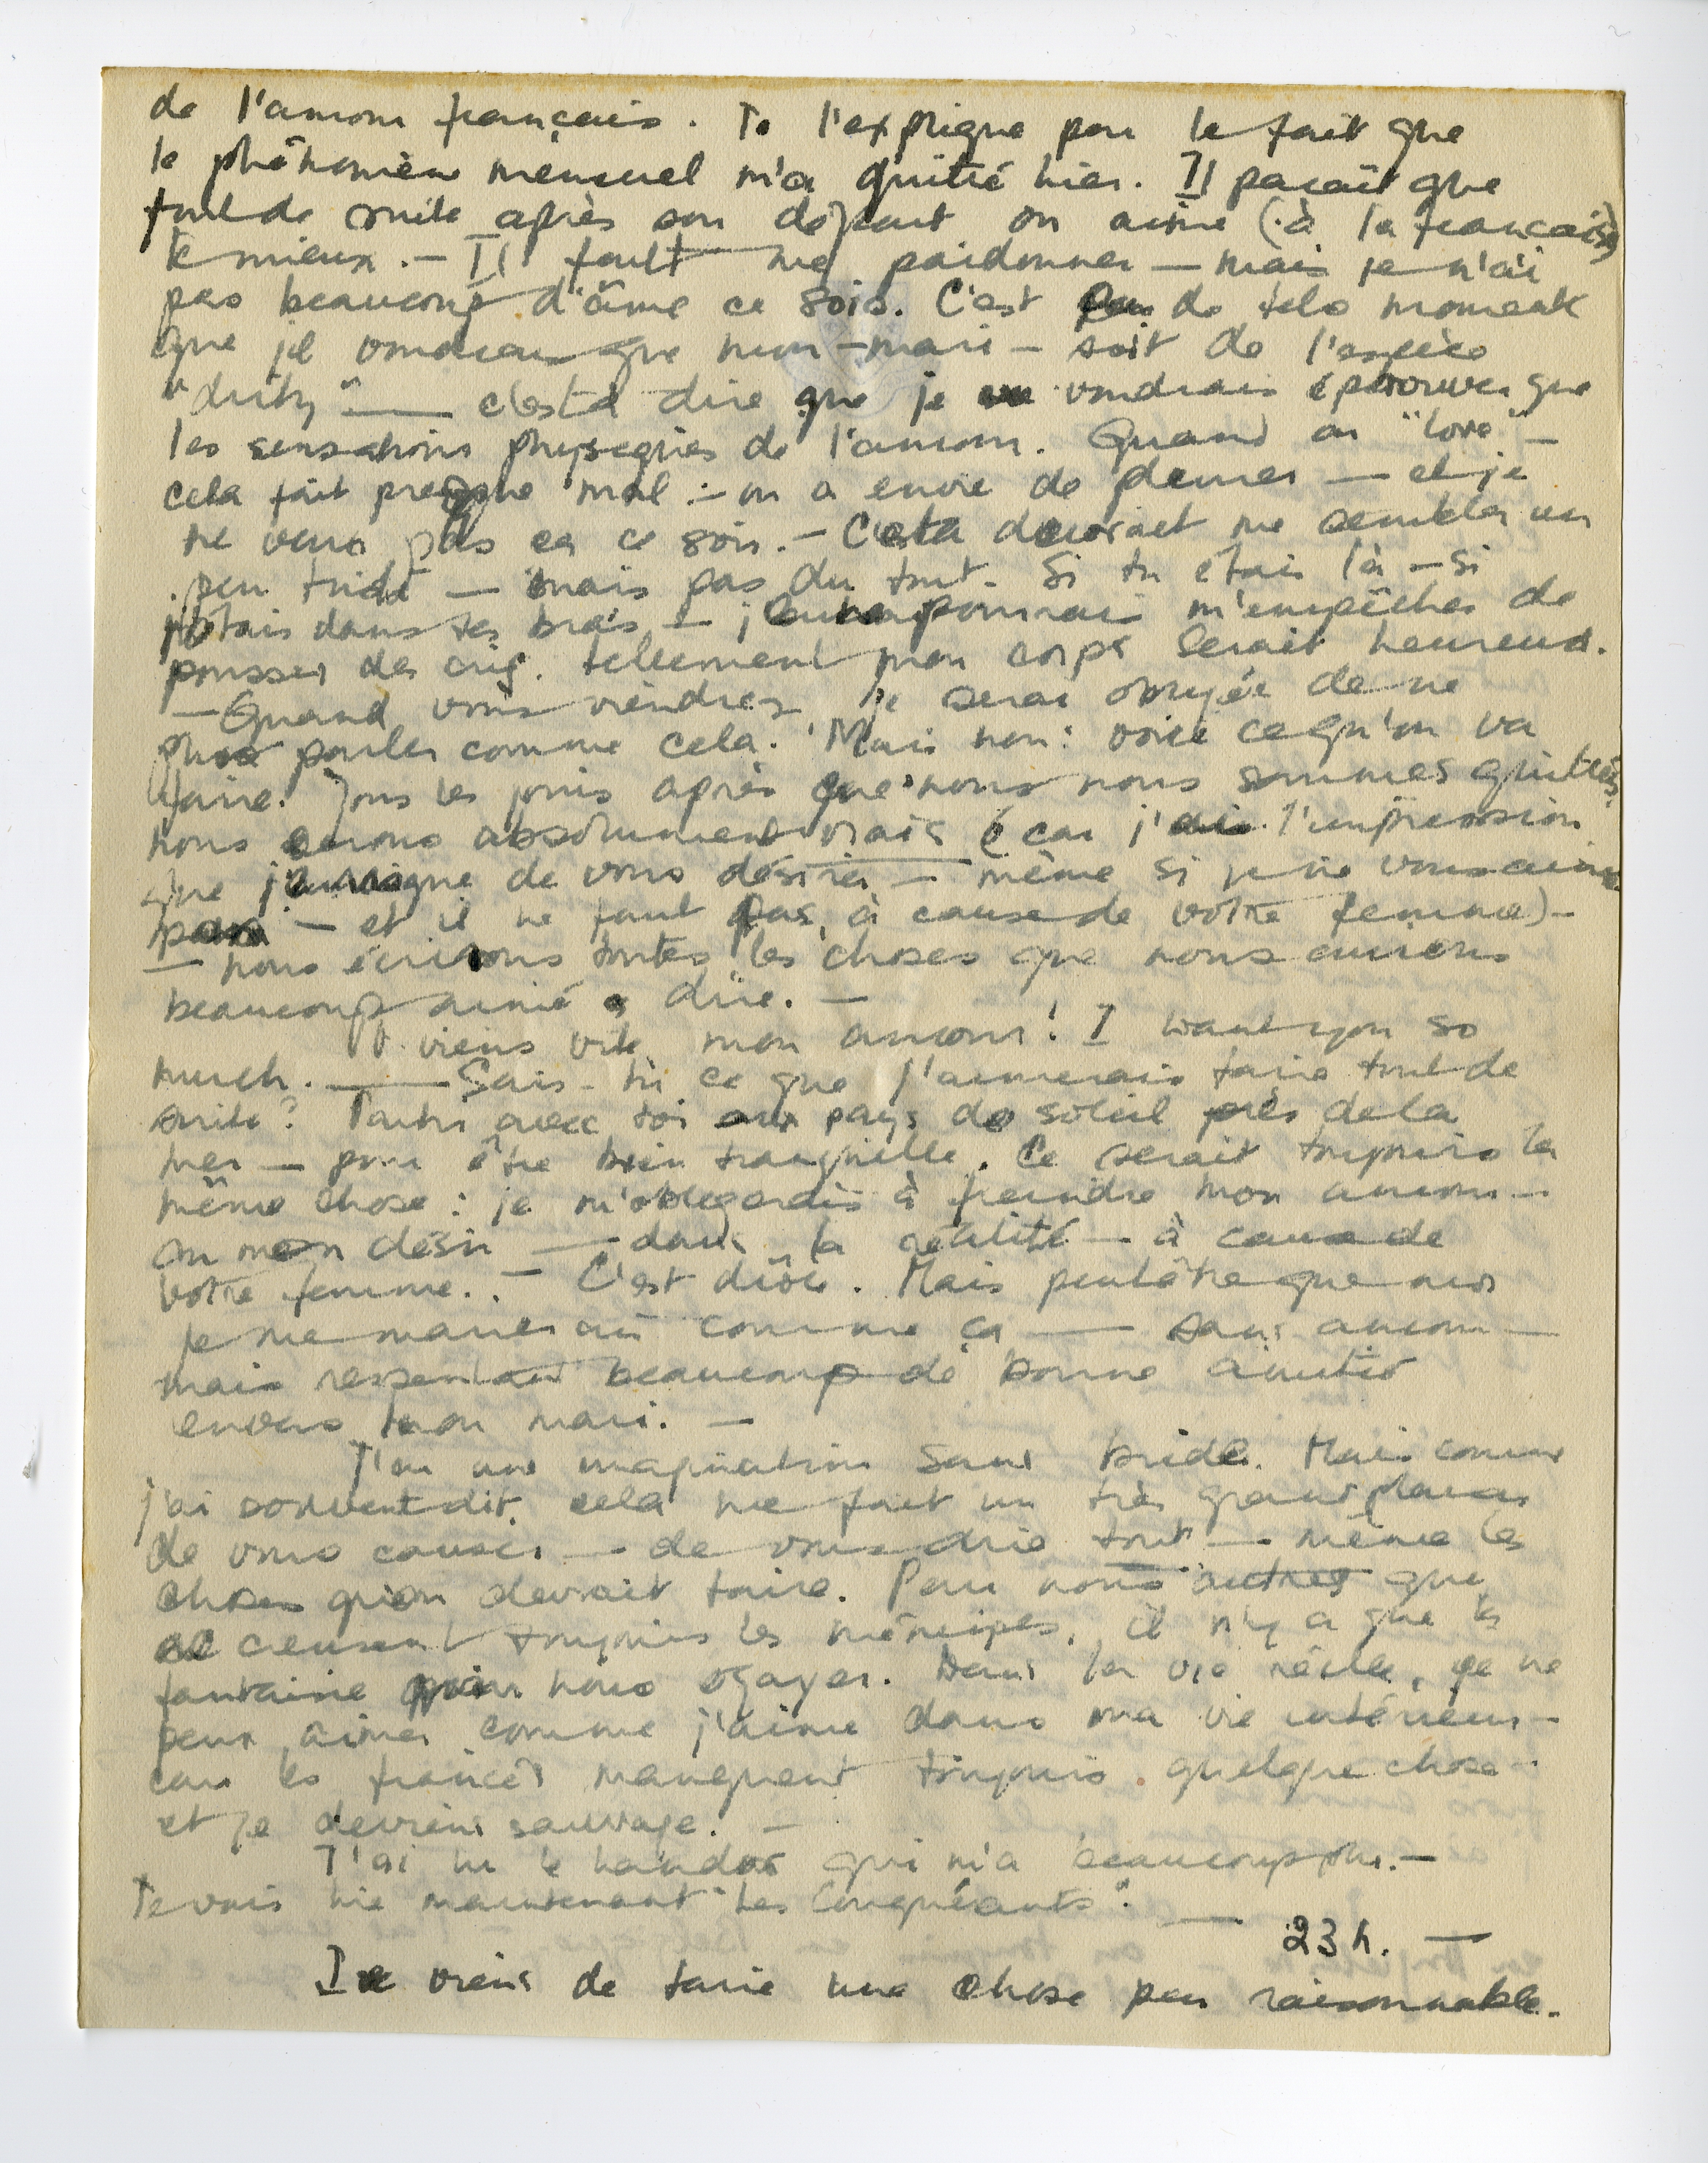 de l'amour français. Je l'explique par le fait que
le phénomène mensuel m'a quitté hier. Il paraît que
tout de suite après son départ on aime (à la française)
le mieux. — Il faut me pardonner — mais je n'ai
pas beaucoup d'âme ce soir. C'est de tels moments
que je voudrais que mon — mari — soit de l'espèce
— c'est à dire que je voudrais éprouver que
les sensations physiques de l'amour. Quand on "love" —
cela fait presque mal : on a envie de pleurer — et je
ne veux pas ça ce soir. — Cela devrait me sembler un
peu triste — mais pas du tout. Si tu étais là — si
j'étais dans tes bras — je pourrais m'empêcher de
pousser des cris. tellement mon corps serait heureux.
— Quand vous viendrez je serai obligée de ne
plus parler comme cela. Mais non : voici ce qu'on va
faire. Tous les jours après que nous nous sommes quittés,
nous serons absolument vrais (car j'ai l'impression
que je de vous désirer — même si je ne vous aime
pas — et il ne faut pas, à cause de votre femme) —
— nous écrirons toutes les choses que nous aurions
beaucoup aimé à dire. —
O viens vite mon amour! I want you so
much. — Sais-tu ce que j'aimerais faire tout de
suite? Partir avec toi aux pays de soleil près de la
mer — pour être bien tranquille. Ce serait toujours la
même chose : je m' à feindre mon amour —
ou mon désir — dans la réalité — à cause de
votre femme. — C'est drôle. Mais peut être que moi
je me marierai comme ça — sans amour —
mais ressentant beaucoup de bonne amitié
envers mon mari. —
J'ai une imagination sans bride. Mais comme
j'ai souvent dit, cela me fait un très grand plaisir
de vous causer — de vous dire tout — même les
choses qu'on devrait taire. Pour nous autres qui
se creusent toujours les méninges, il n'y a que la
fantaisie pour nous égayer. Dans la vie réelle, je ne
peux aimer comme j'aime dans ma vie intérieure —
car les fiancés manquent toujours quelque chose —
et je deviens sauvage. —
J'ai lu le qui m'a beaucoup plu. —
Je vais lire maintenant "Les Conquérants". —
23 h. —
Je viens de faire une chose peu raisonnable.